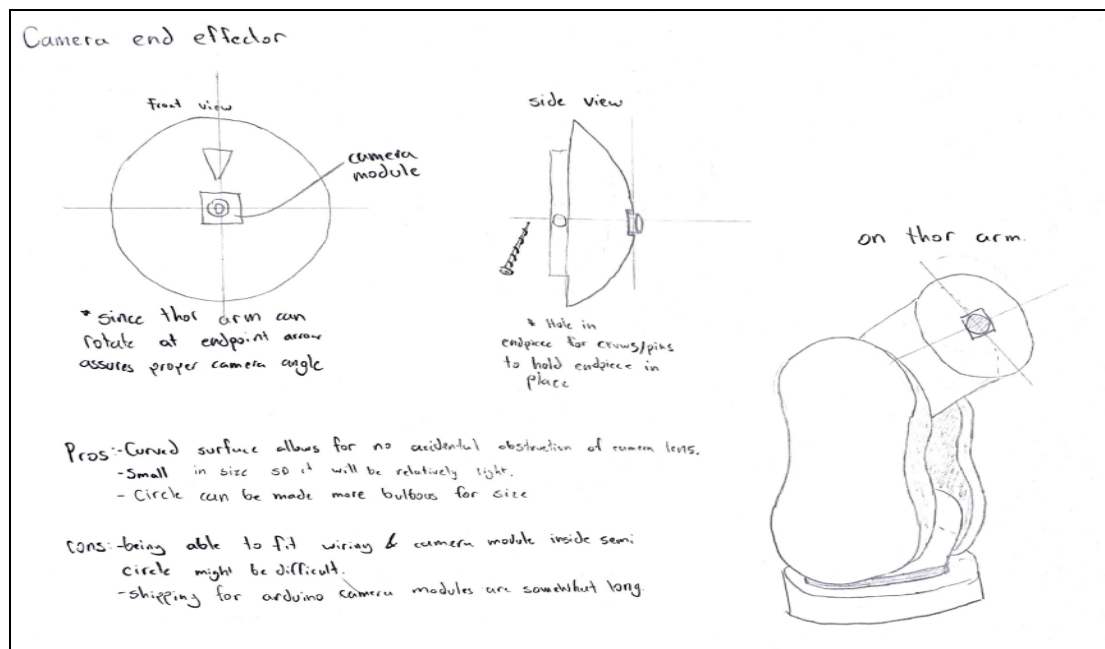 Camera end effector
Front view
camera
module
* since thor arm can
rotate at endpoint arrow
assures proper camera angle
side view
* Hole in
endpiece for cruws/pins
to hold endpiece in
place
on thor arm.
Pros:-Curved surface allows for no accidental obstruction of camera lens.
-Small in size so it will be relatively light.
- Circle can be made more bulbous for size
Cons:-being able to fit wiring & camera module inside semi
circle might be difficult.
-shipping for arduino camera modules are somewhat long.